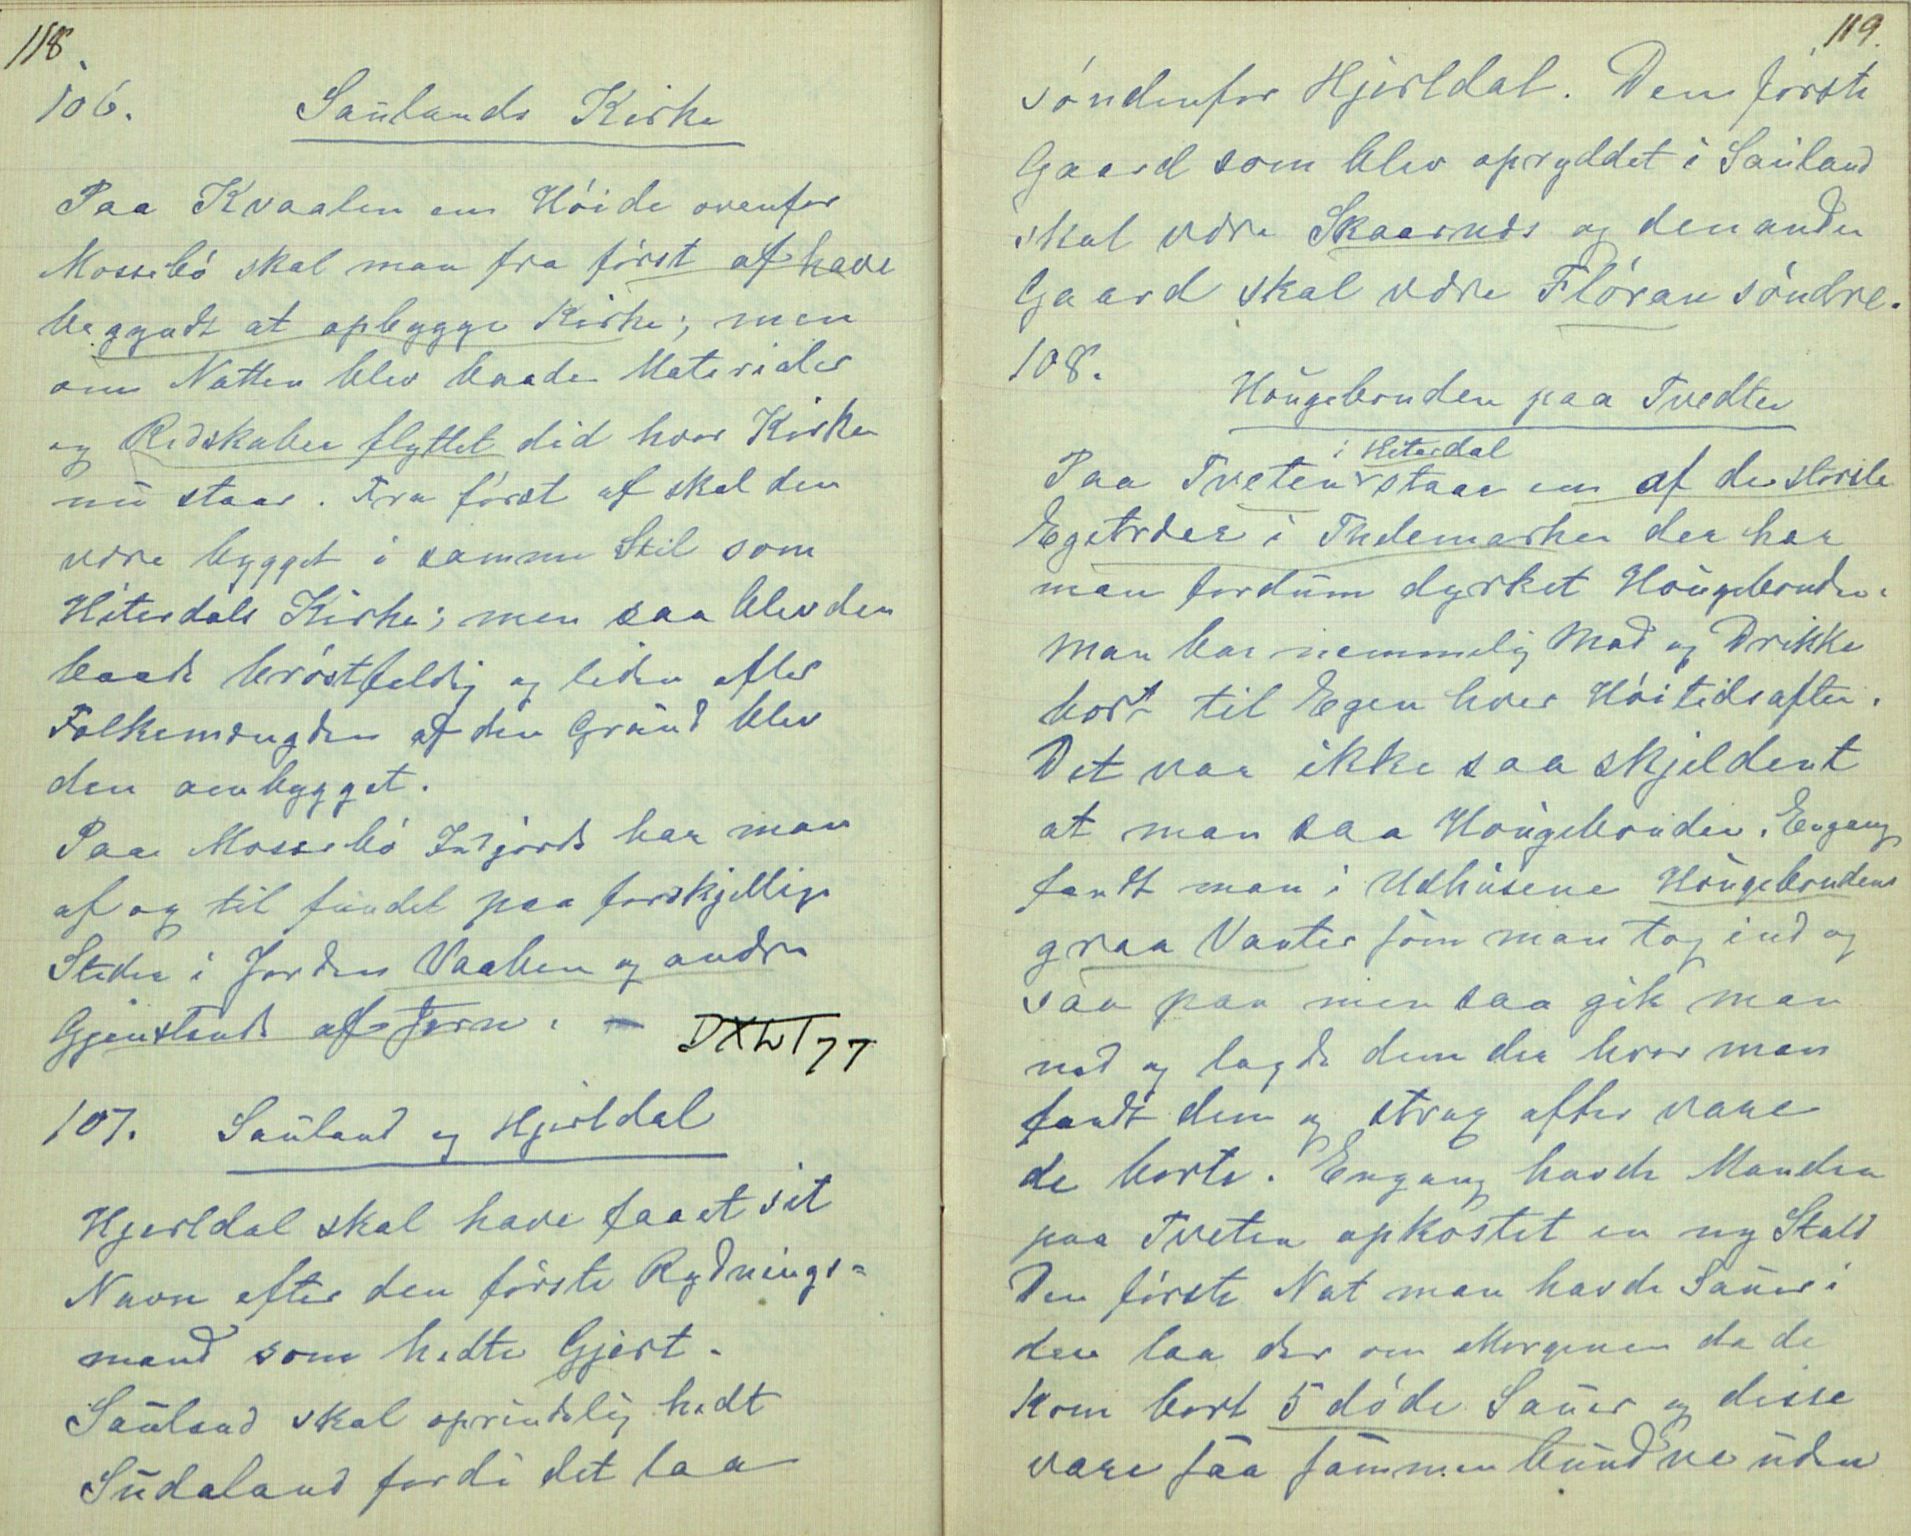 118.
106. Saulands Kirke
Paa Kvaalen en Höide ovenfor
Mossebö skal man fra först af have
begyndt at opbygge Kirke; men
om Natten blev baade Materialer
og Redskaber flyttet did hvor Kirken
nu staar. Fra först af skal den
være bygget i samme Stil som
Hiterdals Kirke; men saa blev den
baade bröstfeldig og liden efter
Folkemængden af den Grund blev
den ombygget.
Paa Mossebö Indjorde har man
af og til fundet paa forskjellige
Steder i Jorden Vaaben og andre
Gjenstande af Jern. —
107. Sauland og Hjertdal
Hjertdal skal have faaet sit
Navn efter den förste Rydnings=
mand som hedte Gjert.
Sauland skal oprindelig hedt
Sudaland fordi det laa
119.
söndenfor Hjertdal. Den förste
Gaard som blev opryddet i Sauland
skal være Skaarnes og den anden
Gaard skal være Flöran söndre.
108.
Hougebonden paa Tvedten
i Hiterdal
Paa Tveten staar en af de störste
Egetræer i Thelemarken der har
man fordum dyrket Hougebonden.
Man bar nemmelig Mad og Drikke
bort til Egen hver Höitidsaften.
Det var ikke saa skjeldent
at man saa Hougebonden. Engang
fandt man i Udhusene Hougebondens
graa Vanter som man tog ind og
saa paa men saa gik man
ned og lagde dem der hvor man
fandt dem og strax efter vare
de borte. Engang havde Manden
paa Tveten opkostet en ny Stald
Den förste Nat man havde Sauer i
den laa der om Morgenen da de
kom bort 5 döde Sauer og disse
vare saa sammenbundne uden